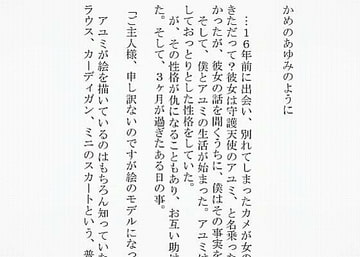 かめのあゆみのように
…１６年前に出会い、別れてしまったカメが女の
きただって？彼女は守護天使のアユミ、と名乗った
かったが、彼女の話を聞くうちに、僕はその事実を
そして、僕とアユミの生活が始まった。アユミは
しておっとりとした性格をしていた。
が、その性格が仇になることもあり、お互い助け
た。そして、３ヶ月が過ぎたある日の事。
「ご主人様、申し訳ないのですが絵のモデルになっ
アユミが絵を描いているのはもちろん知っていた
ラウス、カーディガン、ミニのスカートという、普